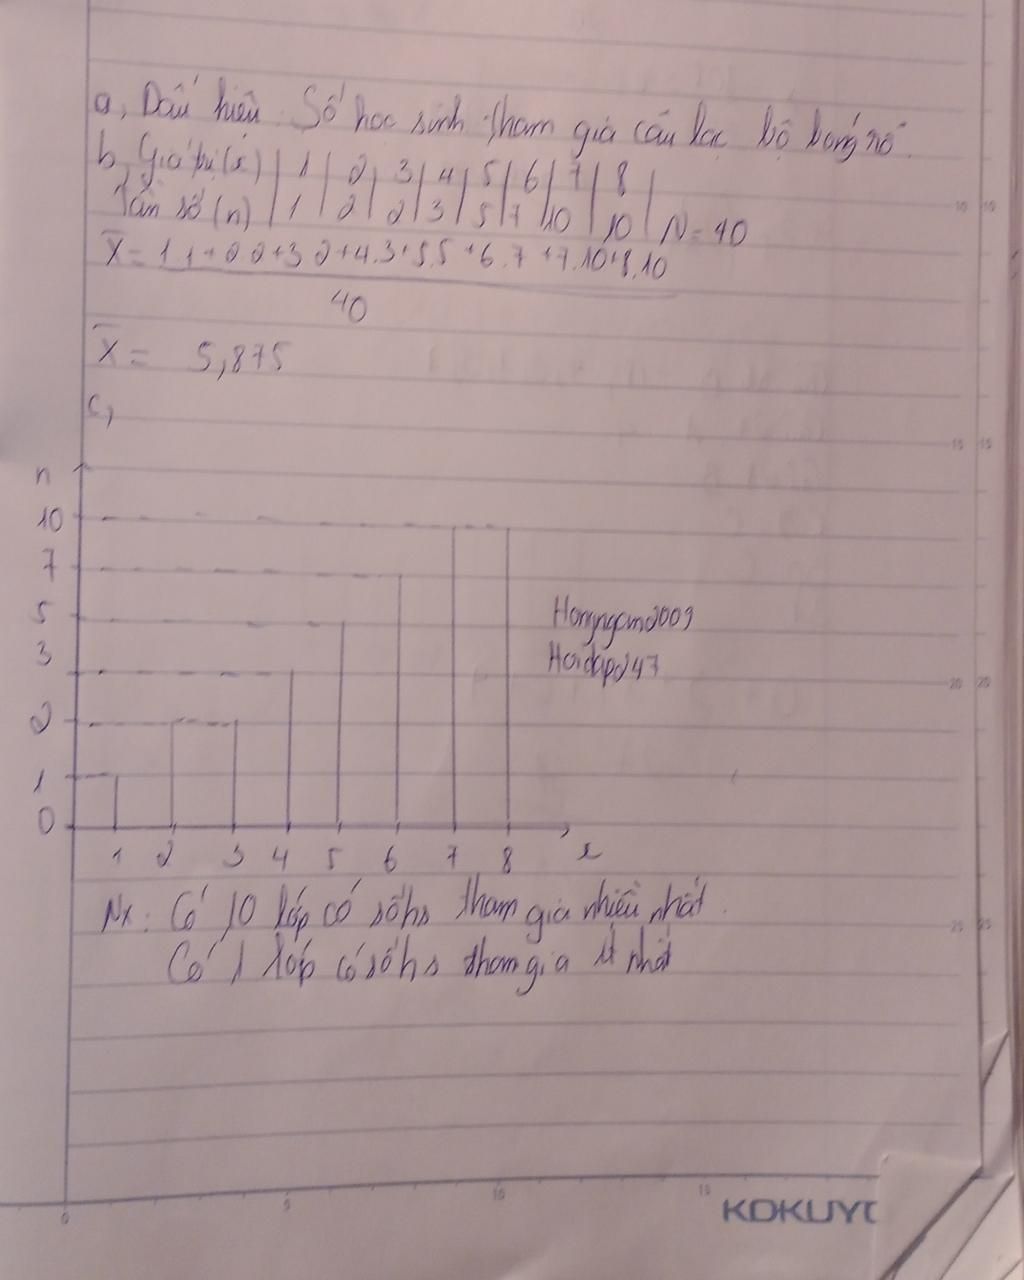 a, Dấu hiệu: Số học sinh tham gia câu lạc bộ bóng rổ.
b, Giá trị (x) | 1 | 2 | 3 | 4 | 5 | 6 | 7 | 8 |
Tần số (n) | 1 | 2 | 2 | 3 | 5 | 7 | 10 | 10 | N = 40
X̄ = 1.1+2.2+3.2+4.3+5.5+6.7+7.10+8.10
40
X̄ = 5,875
c,
n
10
7
5
3
2
1
0
1 2 3 4 5 6 7 8 x
Hongngcm2003
Hoidap247
Nx: Có 10 lớp có số hs tham gia nhiều nhất.
Có 1 lớp có số hs tham gia ít nhất
10 10
15 15
20 20
25 25
0 5 10 15
KOKUYO